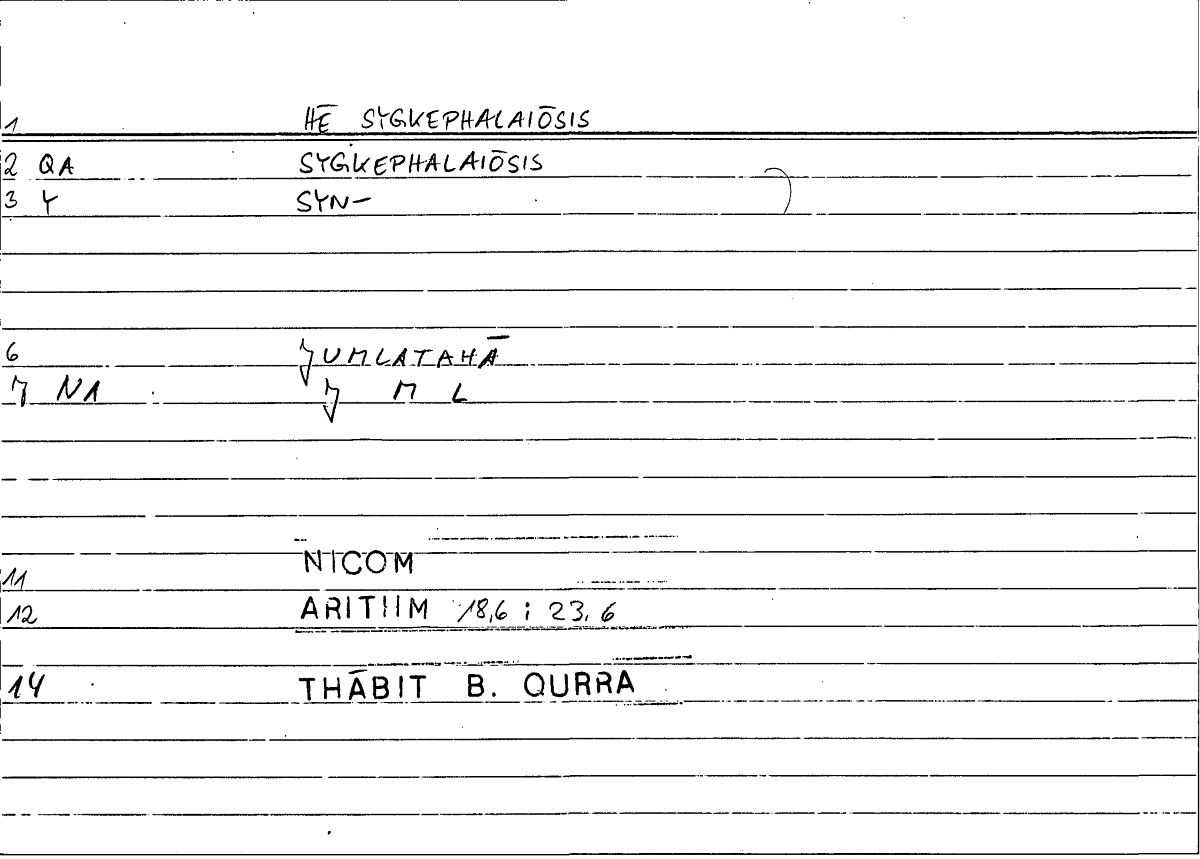 1 HĒ SYGKEPHALAIŌSIS
2 QA SYGKEPHALAIŌSIS
3 Y SYN-
6 ǦUMLATAHĀ
7 N1 Ǧ M L
11 NICOM
12 ARITHM 18,6 ; 23,6
14 THĀBIT B. QURRA